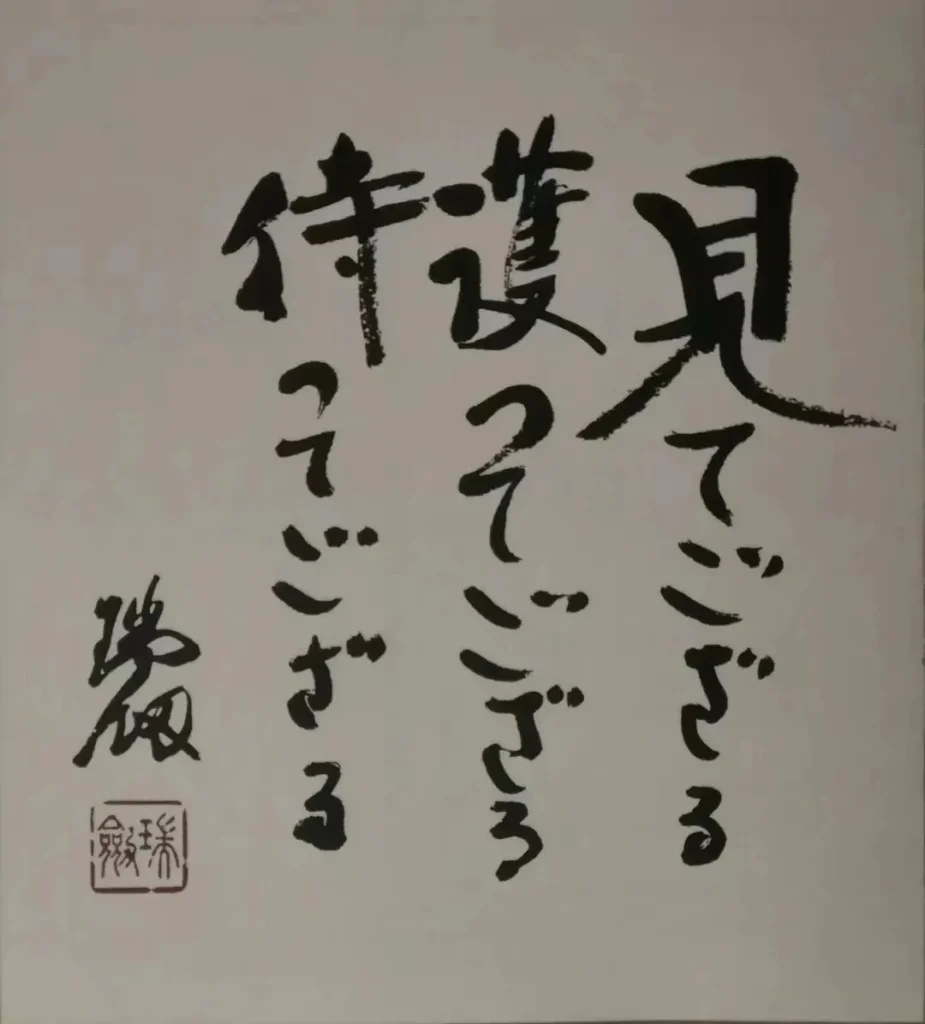 見てござる
護ってござる
待ってござる
瑞巌